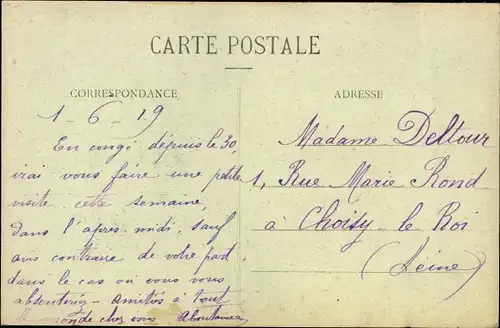 CARTE POSTALE
CORRESPONDANCE
ADRESSE
1-6-19
En congé dépuis le 30,
irai vous faire une petite
visite cette semaine,
dans l'après-midi, sauf
avis contraire de votre part
dans le cas où vous vous
absenteriez - Amitiés à tout
le monde chez vous
Madame Deltour
1, Rue Marie Rond
à Choisy-le Roi
(Seine)